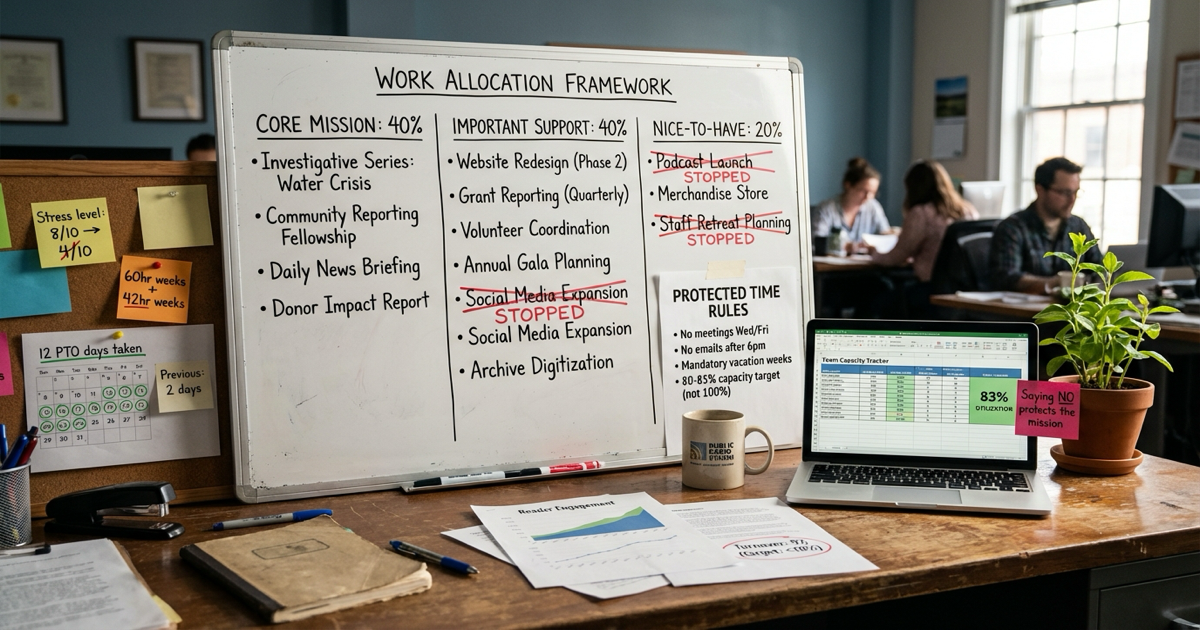 WORK ALLOCATION FRAMEWORK
CORE MISSION: 40%
• Investigative Series:
Water Crisis
• Community Reporting
Fellowship
• Daily News Briefing
• Donor Impact Report
IMPORTANT SUPPORT: 40%
• Website Redesign (Phase 2)
• Grant Reporting (Quarterly)
• Volunteer Coordination
• Annual Gala Planning
• Social Media Expansion
STOPPED
• Social Media Expansion
• Archive Digitization
NICE-TO-HAVE: 20%
• Podcast Launch
STOPPED
• Merchandise Store
• Staff Retreat Planning
STOPPED
PROTECTED TIME
RULES
• No meetings Wed/Fri
• No emails after 6pm
• Mandatory vacation weeks
• 80-85% capacity target
(not 100%)
Stress level:
8/10 →
4/10
60hr weeks
+
42hr weeks
12 PTO days taken
Previous:
2 days
Team Capacity Tracker
83%
Saying NO
protects the
mission
PUBLIC
Reader Engagement
Turnover:
(Target: